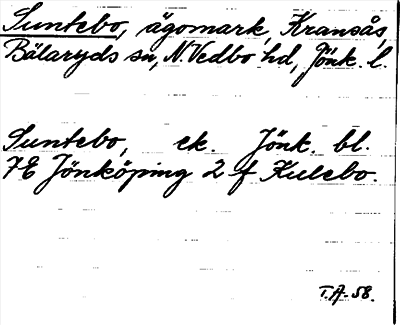 Suntebo, ägomark, Kransås,
Bälaryds sn, N. Vedbo hd, Jönk. l.
Suntebo, ek. Jönk. bl.
7E Jönköping 2 f Kulebo.
T.A. 58.